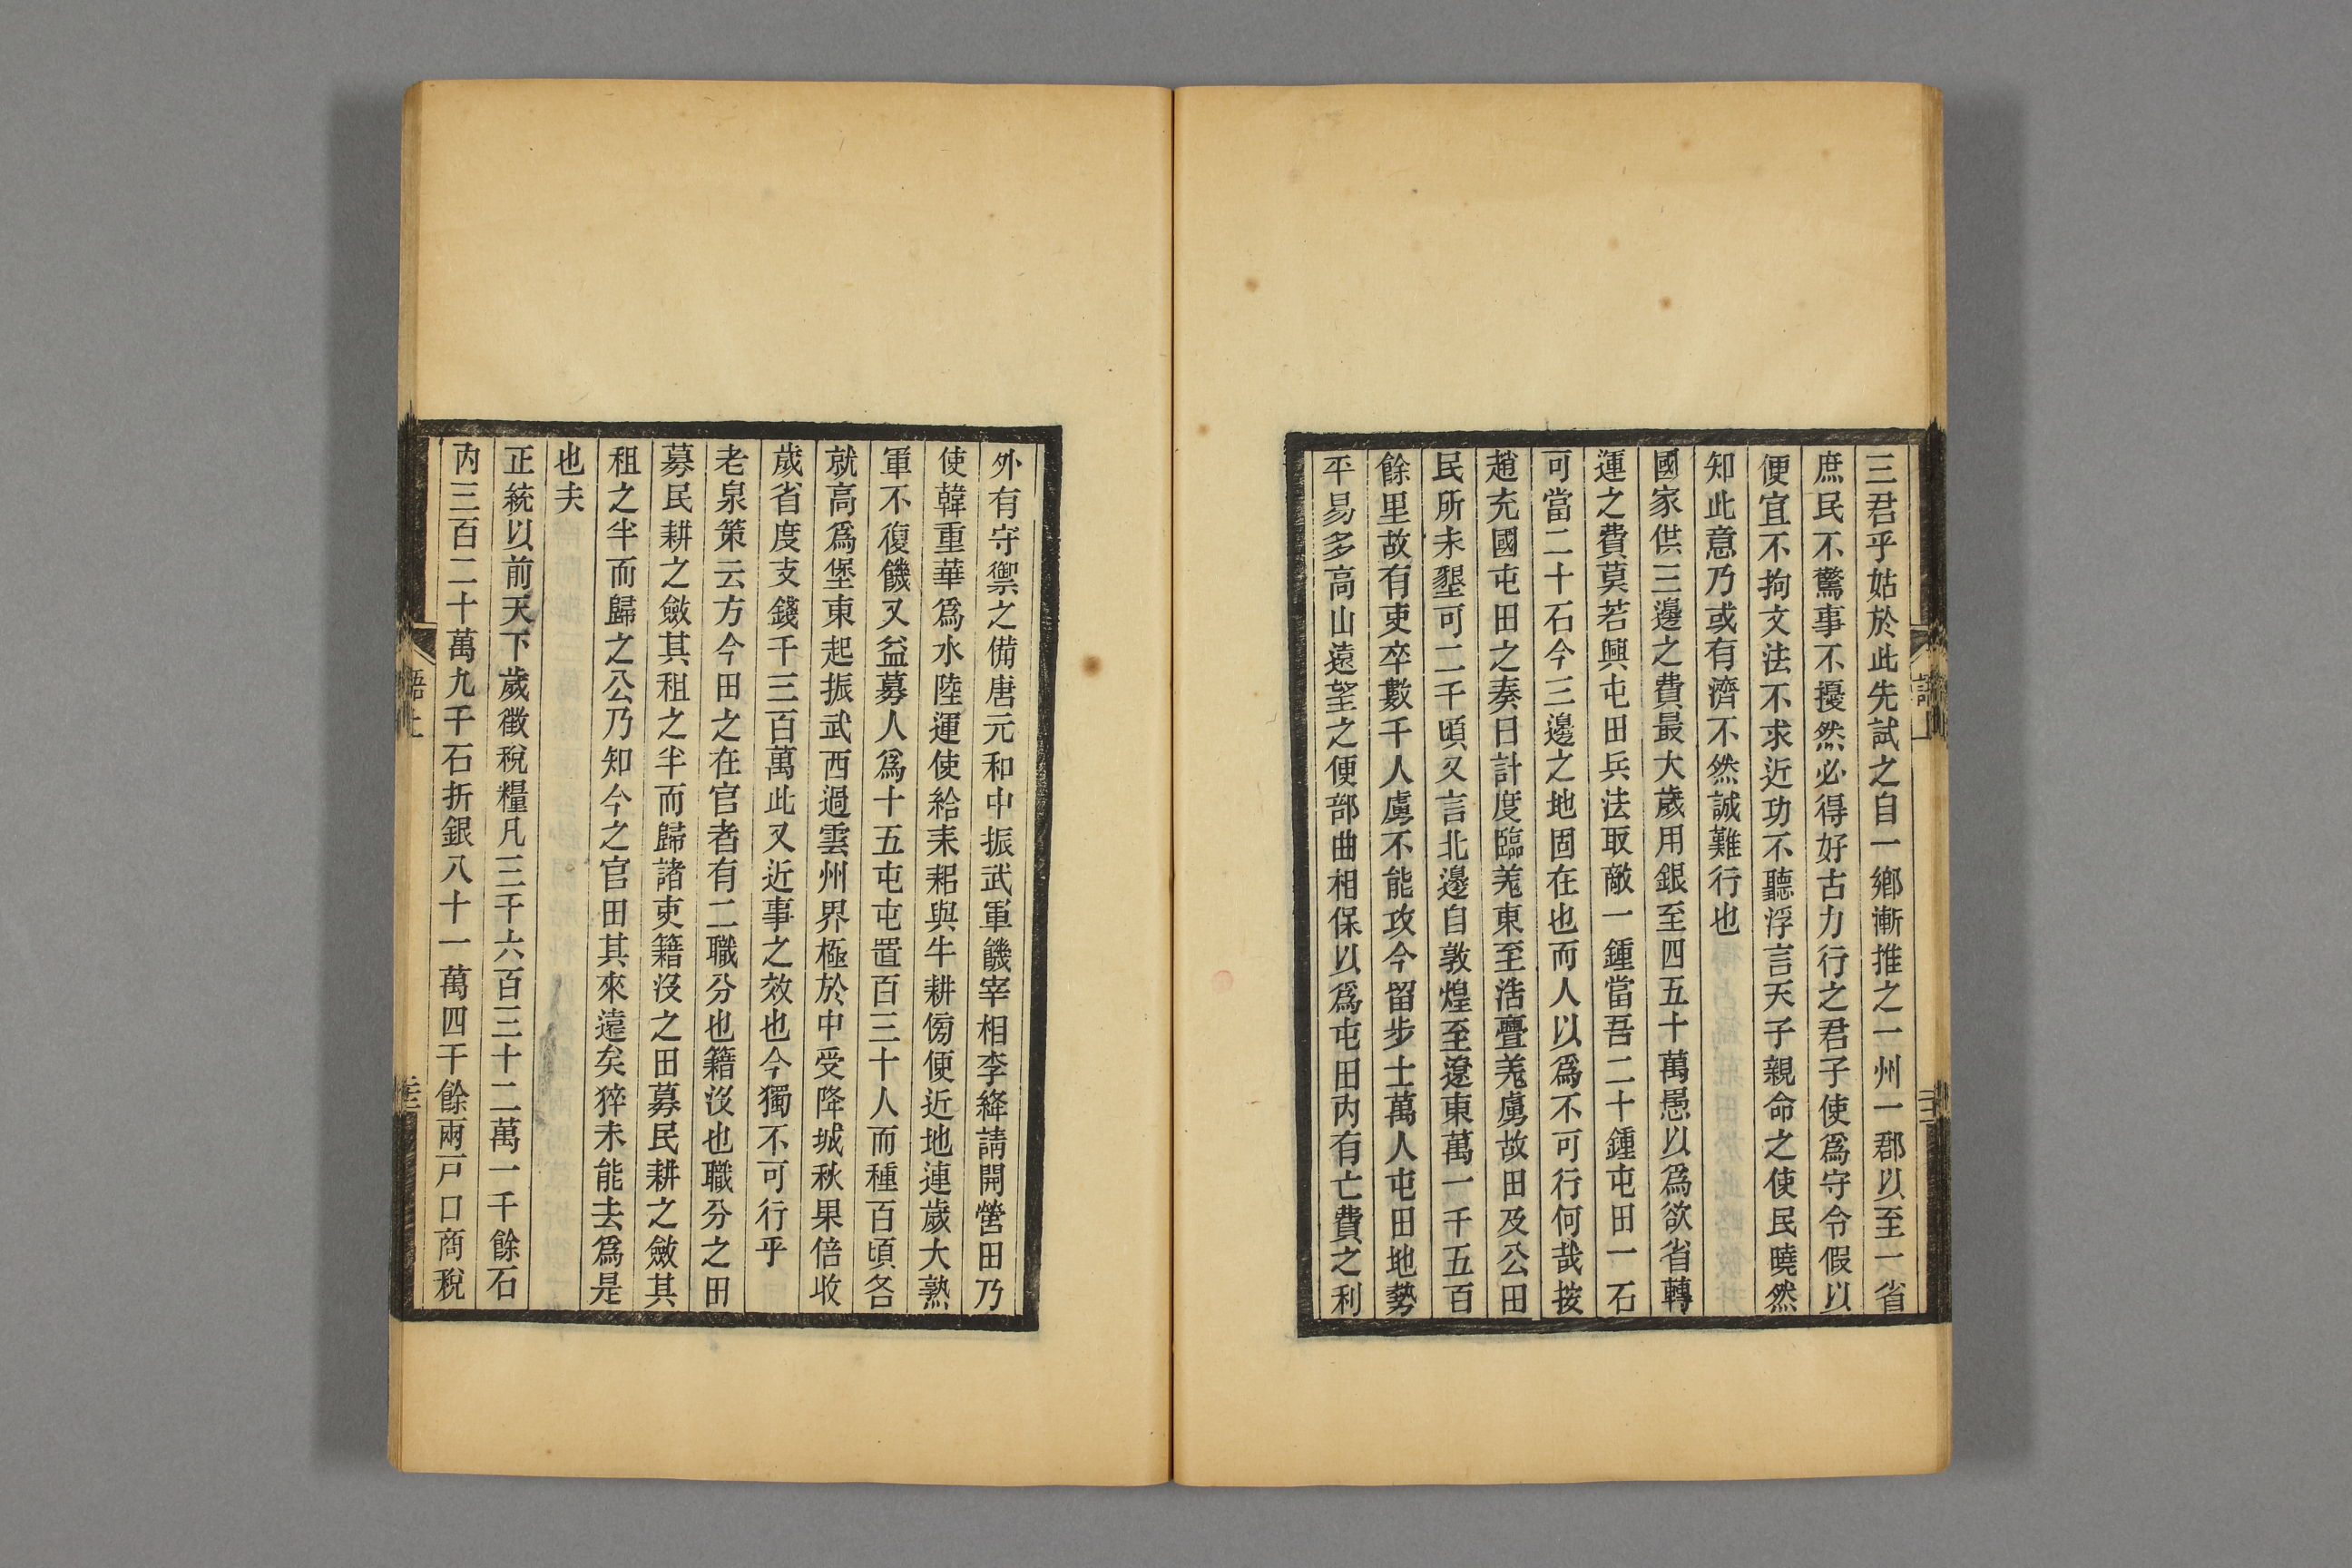 三君乎姑於此先試之自一鄉漸推之一州一郡以至一省
庶民不驚事不擾然必得好古力行之君子使爲守令假以
便宜不拘文法不求近功不聽浮言天子親命之使民曉然
知此意乃或有濟不然誠難行也
國家供三邊之費最大歲用銀至四五十萬愚以爲欲省轉
運之費莫若興屯田兵法取敵一鍾當吾二十鍾屯田一石
可當二十石今三邊之地固在也而人以爲不可行何哉按
趙充國屯田之奏曰計度臨羗東至浩亹羗虜故田及公田
民所未墾可二千頃又言北邊自敦煌至遼東萬一千五百
餘里故有吏卒數千人虜不能攻今留步士萬人屯田地勢
平易多高山遠望之便部曲相保以爲屯田内有亡費之利
外有守禦之備唐元和中振武軍饑宰相李絳請開營田乃
使韓重華爲水陸運使給耒耜與牛耕傍便近地連歲大熟
軍不復饑又益募人爲十五屯屯置百三十人而種百頃各
就高爲堡東起振武西過雲州界極於中受降城秋果倍收
歲省度支錢千三百萬此又近事之效也今獨不可行乎
老泉策云方今田之在官者有二職分也籍沒也職分之田
募民耕之斂其租之半而歸諸吏籍沒之田募民耕之斂其
租之半而歸之公乃知今之官田其來遠矣猝未能去爲是
也夫
正統以前天下歲徵稅糧凡三千六百三十二萬一千餘石
内三百二十萬九千石折銀八十一萬四千餘兩戸口商稅
語上